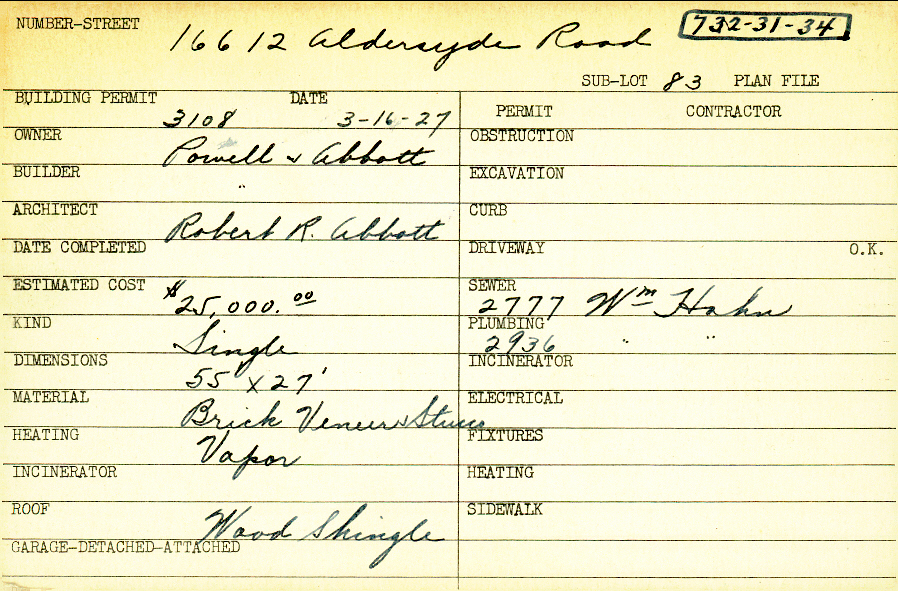 NUMBER-STREET 16612 Aldersyde Road 732-31-34
SUB-LOT 83 PLAN FILE
BUILDING PERMIT 3108 DATE 3-16-27
OWNER Powell & Abbott
BUILDER "
ARCHITECT Robert R. Abbott
DATE COMPLETED
ESTIMATED COST $25,000.00
KIND Single
DIMENSIONS 55' x 27'
MATERIAL Brick Veneer & Stucco
HEATING Vapor
INCINERATOR
ROOF Wood Shingle
GARAGE-DETACHED-ATTACHED
PERMIT CONTRACTOR
OBSTRUCTION
EXCAVATION
CURB
DRIVEWAY O.K.
SEWER 2777 Wm Hahn
PLUMBING 2936 " "
INCINERATOR
ELECTRICAL
FIXTURES
HEATING
SIDEWALK